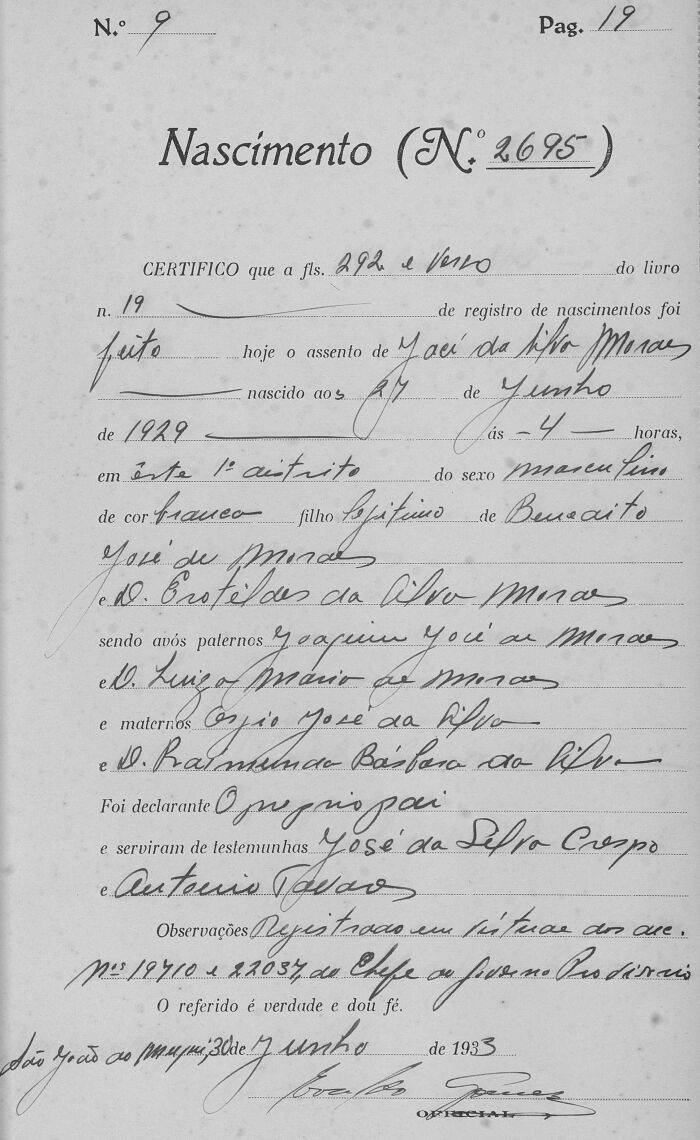 N.º 9 Pag. 19
Nascimento (N.º 2695)
CERTIFICO que a fls. 292 e verso do livro
n. 19 de registro de nascimentos foi
feito hoje o assento de Jací da Silva Moraes
nascido aos 27 de Junho
de 1929 ás -4- horas,
em êste 1º distrito do sexo masculino
de cor branca filho legitimo de Benedito
José de Moraes
e D. Erotildes da Silva Moraes
sendo avós paternos Joaquim José de Moraes
e D. Luiza Maria de Moraes
e maternos José da Silva
e D. Raimunda Bárbara da Silva
Foi declarante O proprio pai
e serviram de testemunhas José da Silva Crespo
e Antonio Tavares
Observações Registrado em virtude dos dec.
Nos 19710 e 22037, do Chefe do Governo Provisorio
O referido é verdade e dou fé.
São João do Muqui, 30 de Junho de 1933
Gomes
OFFICIAL